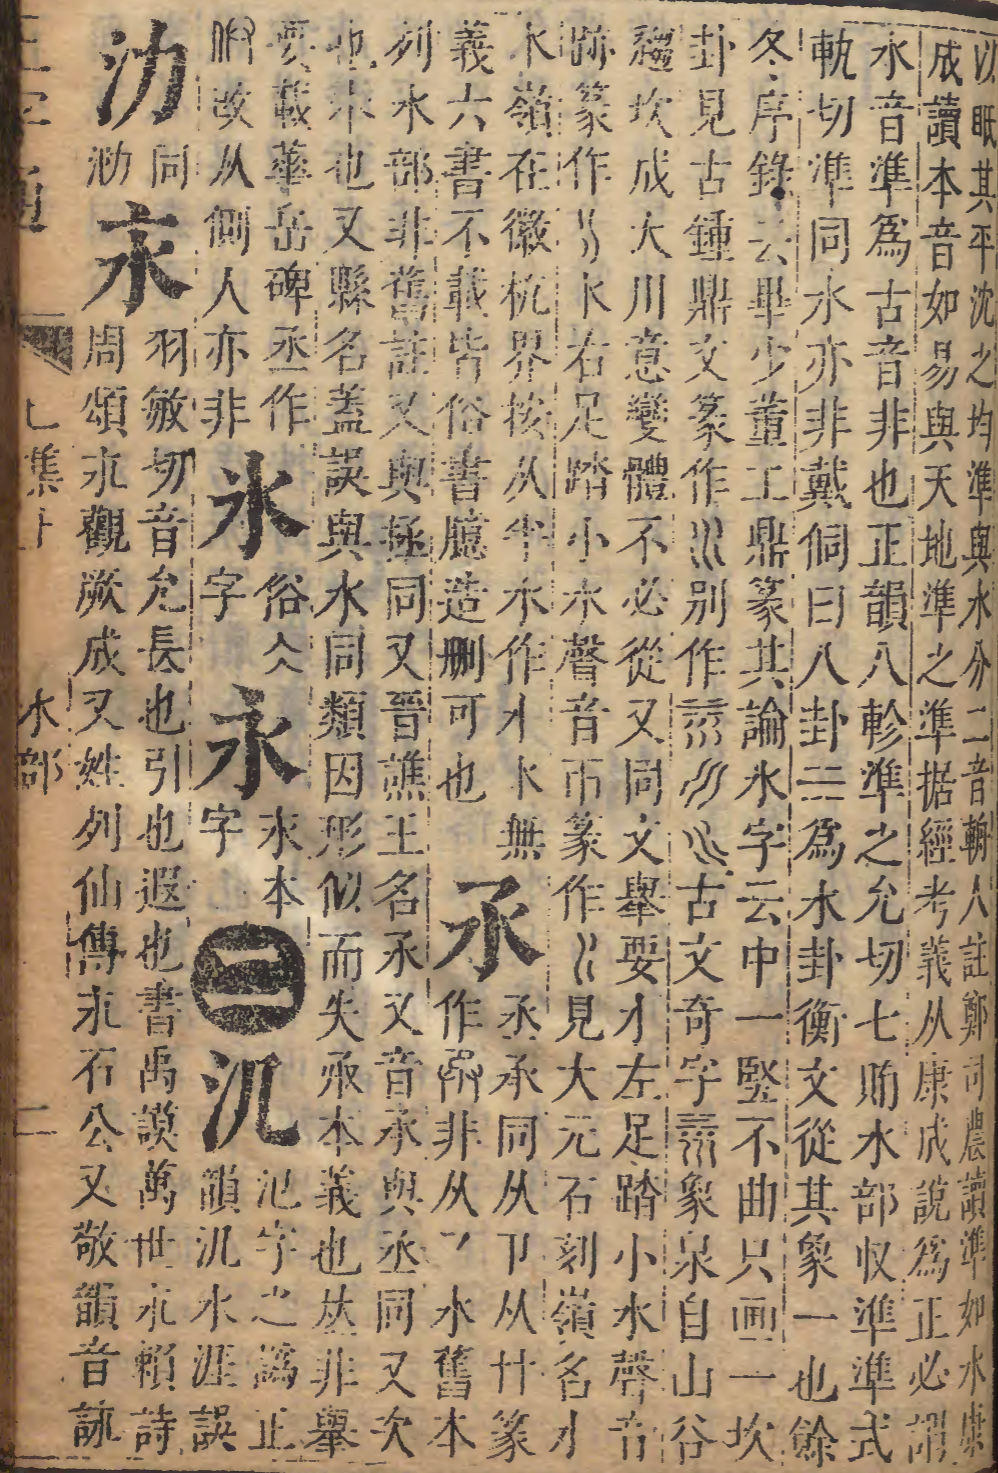 以眂其平沈之均準與水分二音輈人註鄭司農讀準如水康
成讀本音如易與天地準之準据經考義从康成說爲正必謂
水音準爲古音非也正韻八軫準之允切七賄水部収準準式
軌切準同水亦非戴侗曰八卦☵爲水卦衡文從其象一也餘
冬序錄云畢少董工鼎篆其論水字云中一竪不曲只画一坎
卦見古鍾鼎文篆作別作古文奇字象泉自山谷
坎成大川意變體不必從又同文舉要左足踏小水聲音
篆作水右足踏小水聲音帀篆作見大元石刻嶺名
水嶺在徽杭界按从半水作無
丞承同从卩从廾篆
義六書不載皆俗書臆造刪可也
氶
作非从水舊本
列水部非舊註又與拯同又晉譙王名氶又音承與丞同又次
也氶也又縣名蓋誤與水同類因形似而失氶本義也丛非舉
要載華岳碑丞作
氷
俗仌
字
氶
氶本
字
二
氿
氾字之譌正
韻氿水涯誤
改从側人亦非
氻
同
泐
永
羽敏切音允長也引也遐也書禹謨萬世永賴詩
周頌永觀厥成又姓列仙傳永石公又敬韻音詠
巳集上
水部
二